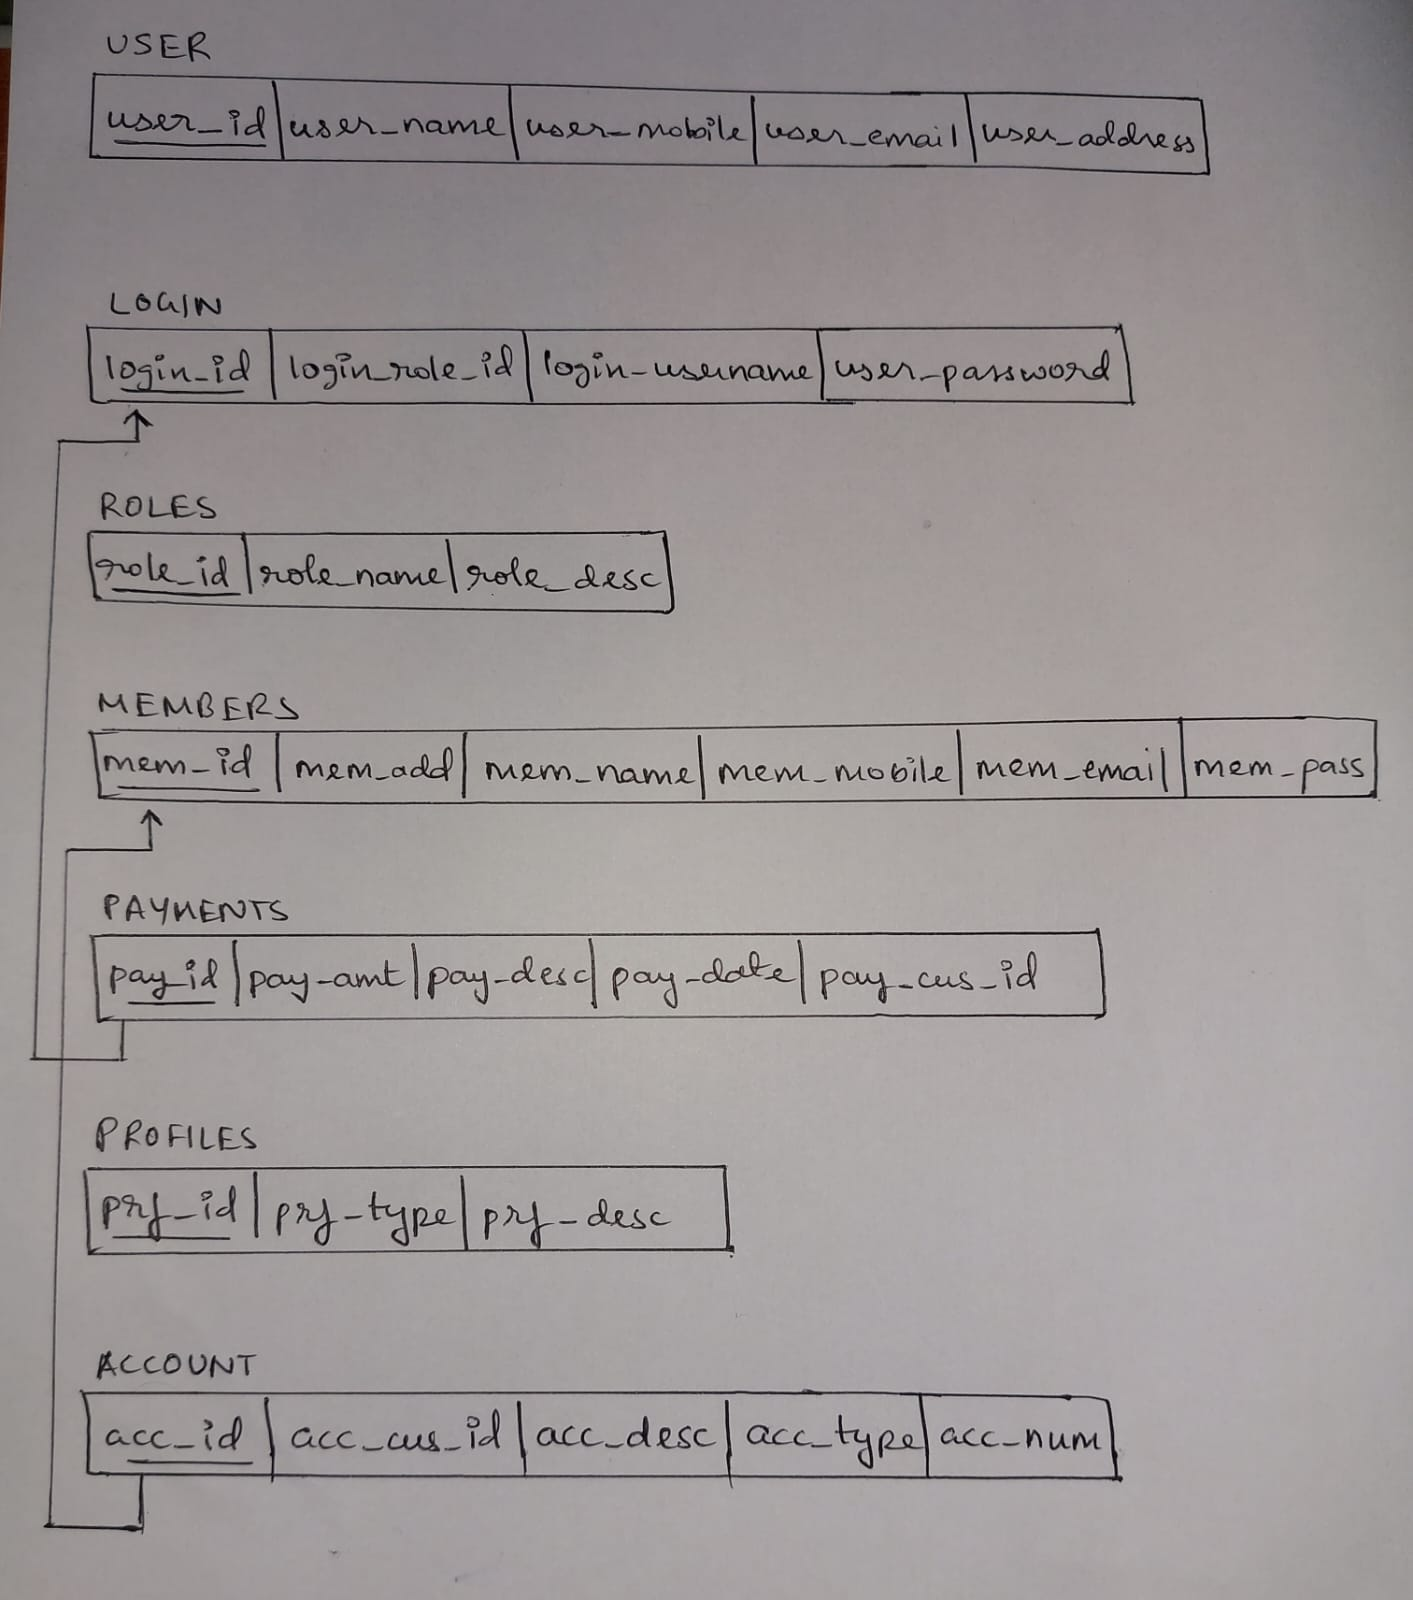 USER
user_id user_name user_mobile user_email user_address
LOGIN
login_id login_role_id login-username user_password
ROLES
role_id role_name role_desc
MEMBERS
mem_id mem_add mem_name mem_mobile mem_email mem_pass
PAYMENTS
pay_id pay-amt pay-desc pay-date pay_cus_id
PROFILES
prf_id prf-type prf-desc
ACCOUNT
acc_id acc_cus_id acc_desc acc_type acc_num